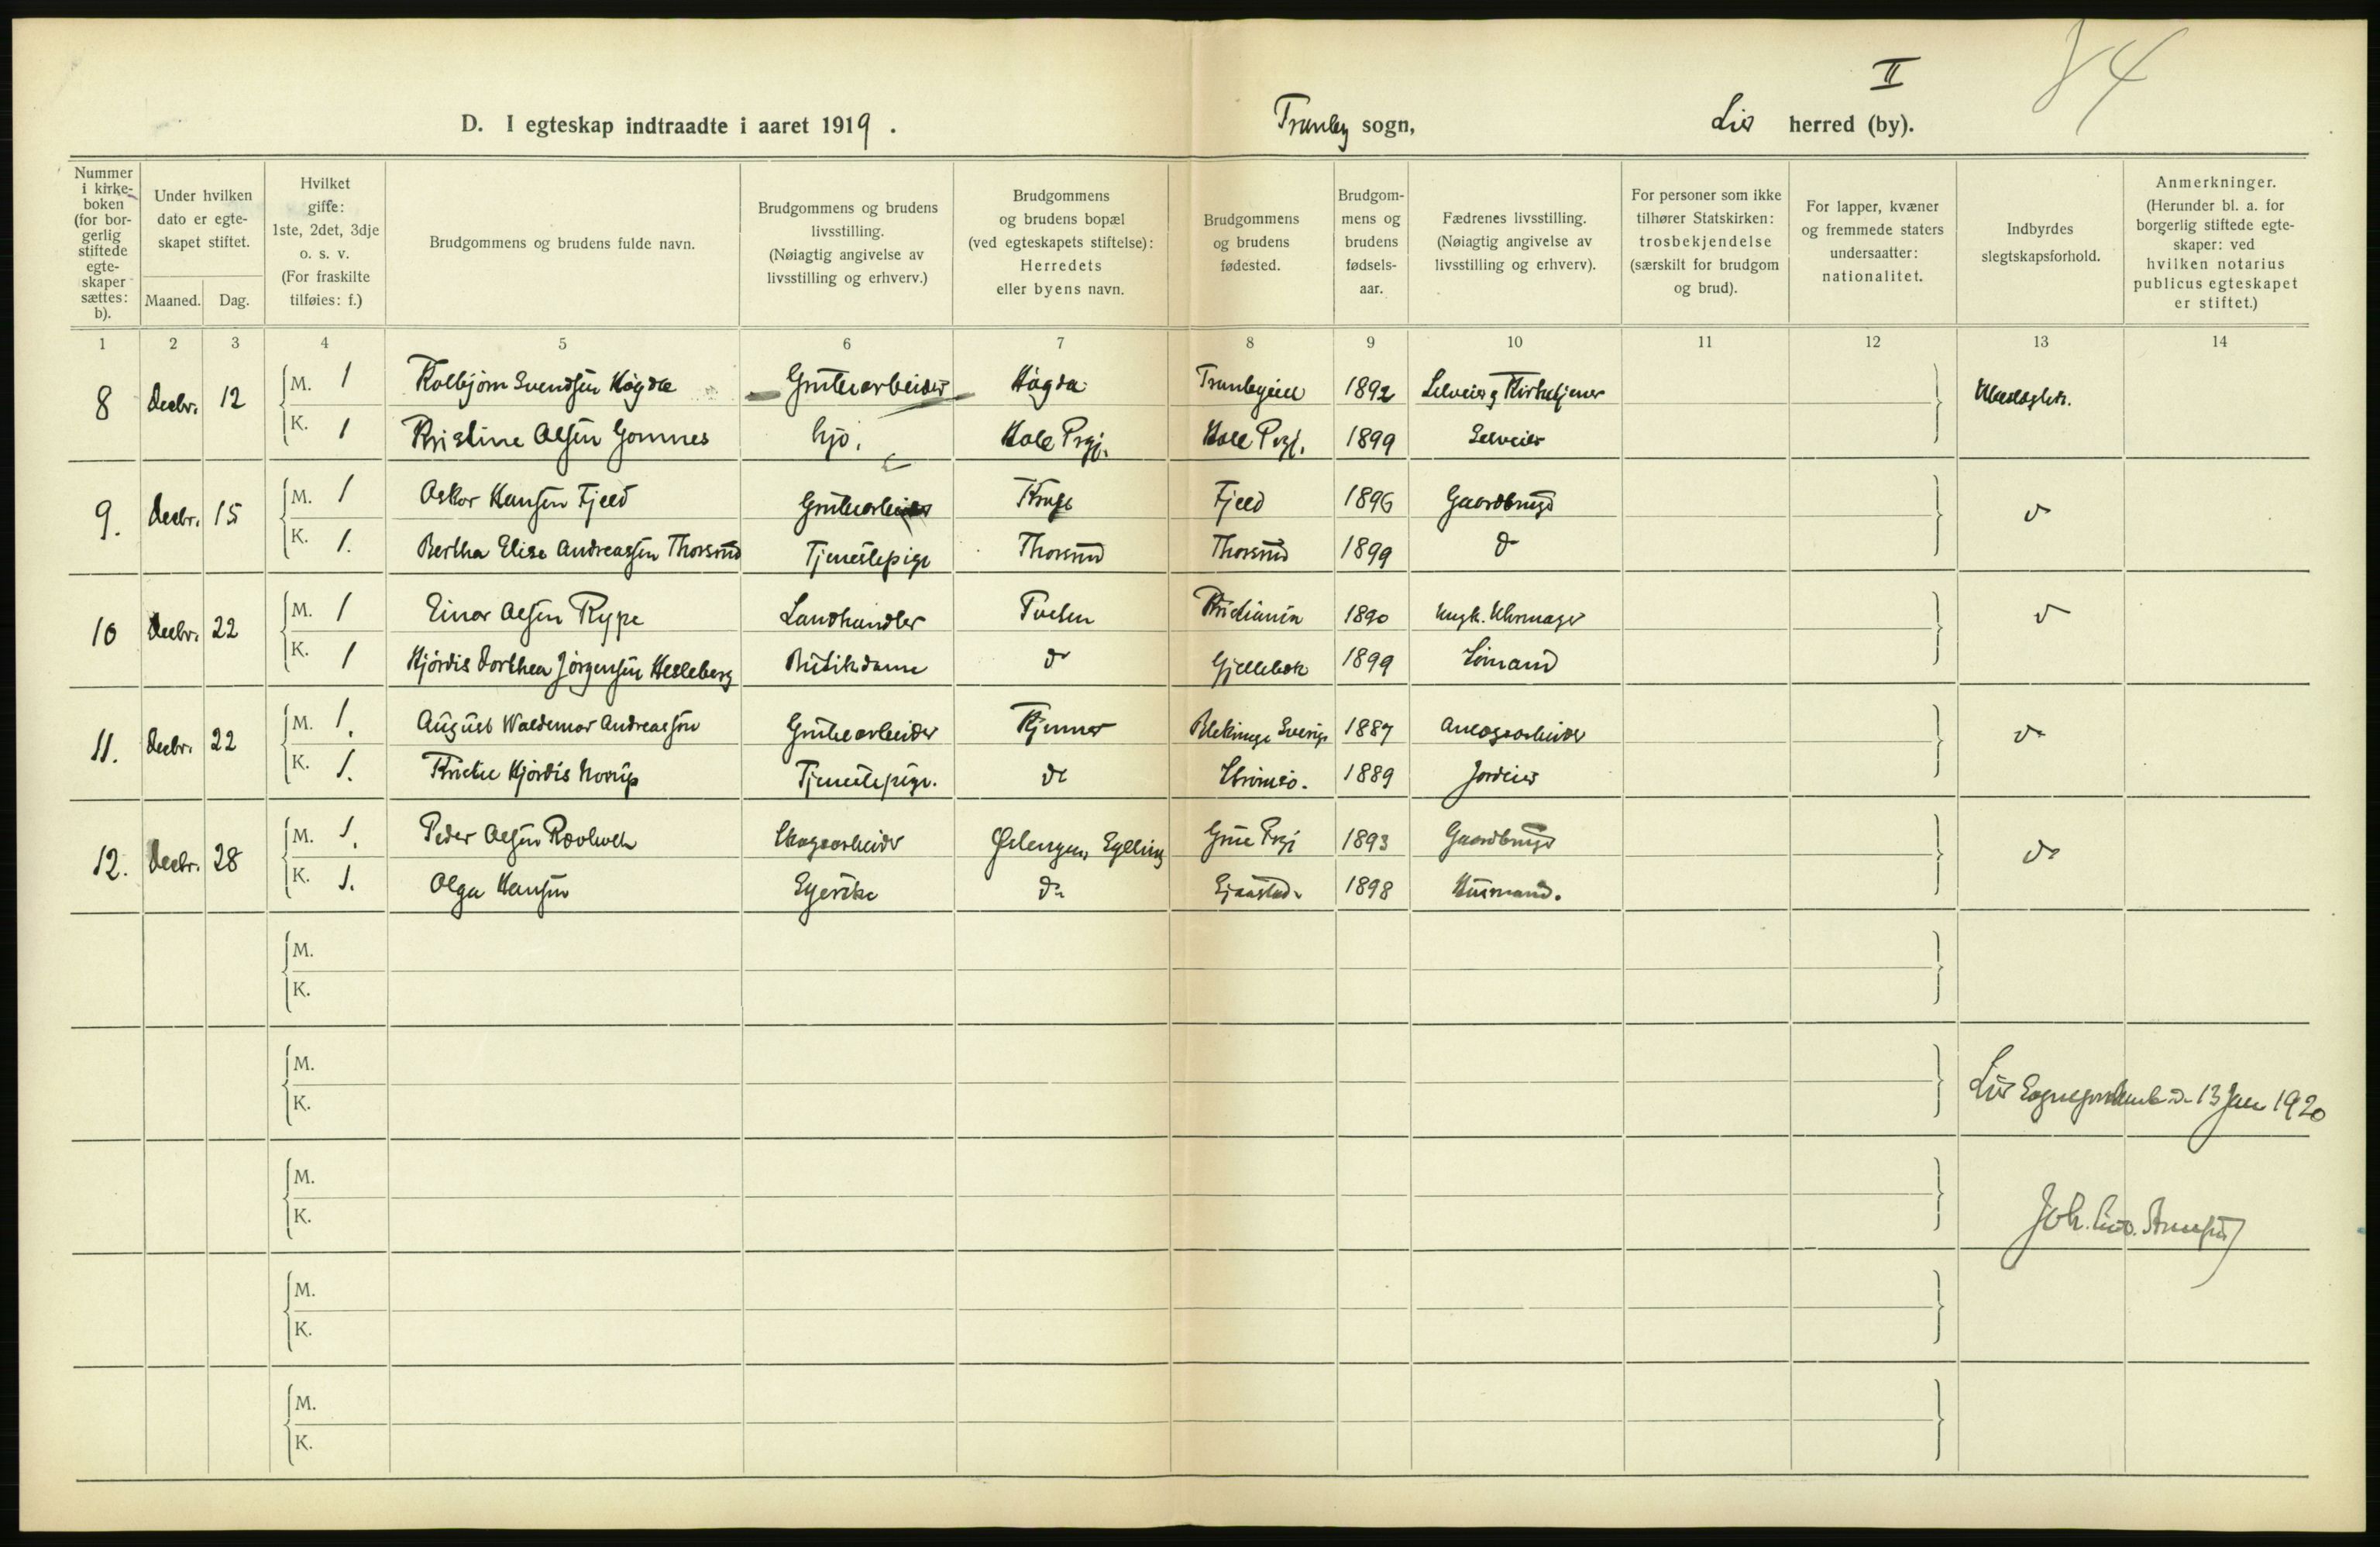 II
84
D. I egteskap indtraadte i aaret 1919.
Tranby sogn,
Lier herred (by).
Nummer i kirke-boken (for bor-gerlig stiftede egte-skaper sættes: b).
Under hvilken dato er egte-skapet stiftet.
Maaned. Dag.
Hvilket gifte: 1ste, 2det, 3dje o. s. v. (For fraskilte tilføies: f.)
Brudgommens og brudens fulde navn.
Brudgommens og brudens livsstilling. (Nøiagtig angivelse av livsstilling og erhverv.)
Brudgommens og brudens bopæl (ved egteskapets stiftelse): Herredets eller byens navn.
Brudgommens og brudens fødested.
Brudgom-mens og brudens fødsels-aar.
Fædrenes livsstilling. (Nøiagtig angivelse av livsstilling og erhverv).
For personer som ikke tilhører Statskirken: trosbekjendelse (særskilt for brudgom og brud).
For lapper, kvæner og fremmede staters undersaatter: nationalitet.
Indbyrdes slegtskapsforhold.
Anmerkninger. (Herunder bl. a. for borgerlig stiftede egte-skaper: ved hvilken notarius publicus egteskapet er stiftet.)
1 2 3 4 5 6 7 8 9 10 11 12 13 14
8 Decbr. 12 M. 1 Kolbjørn Svendsen Høgda Grubearbeider Høgda Tranbyeie 1892 Selveier og Kirketjener Ubeslegtet.
K. 1 Kristine Olsen Gomnes Hole Prgj. Hole Prgj. 1899 Selveier
9. Decbr. 15 M. 1 Oskar Hansen Fjeld Grubearbeider Fjeld 1896 Gaardbruger do
K. 1. Bertha Elise Andreassen Thorsrud Tjenestepige Thorsrud Thorsrud 1899 do
10 Decbr. 22 M. 1 Einar Olsen Rype Landhandler Kristiania 1890 Uhrmager do
K. 1 Hjördis Dorthea Jörgensen Hesleberg Butikdame do Gjellebæk 1899 Sömand
11. Decbr. 22 M. 1. August Waldemar Andreassön Grubearbeider Kjenner Blekinge Sverige 1887 Anlægsarbeider do
K. 1. Hjördis Tjenestepige. do Strømsö. 1889 Jordeier
12. Decbr. 28 M. 1. Peder Olsen Ravholt Skogsarbeider Grue Prgj 1893 Gaardbruger do
K. 1. Olga Hansen Syerske do 1898 Husmand.
M.
K.
M.
K.
Lier Sogneprestemb. d. 13 Jan 1920
M.
K.
Joh.
M.
K.
M.
K.